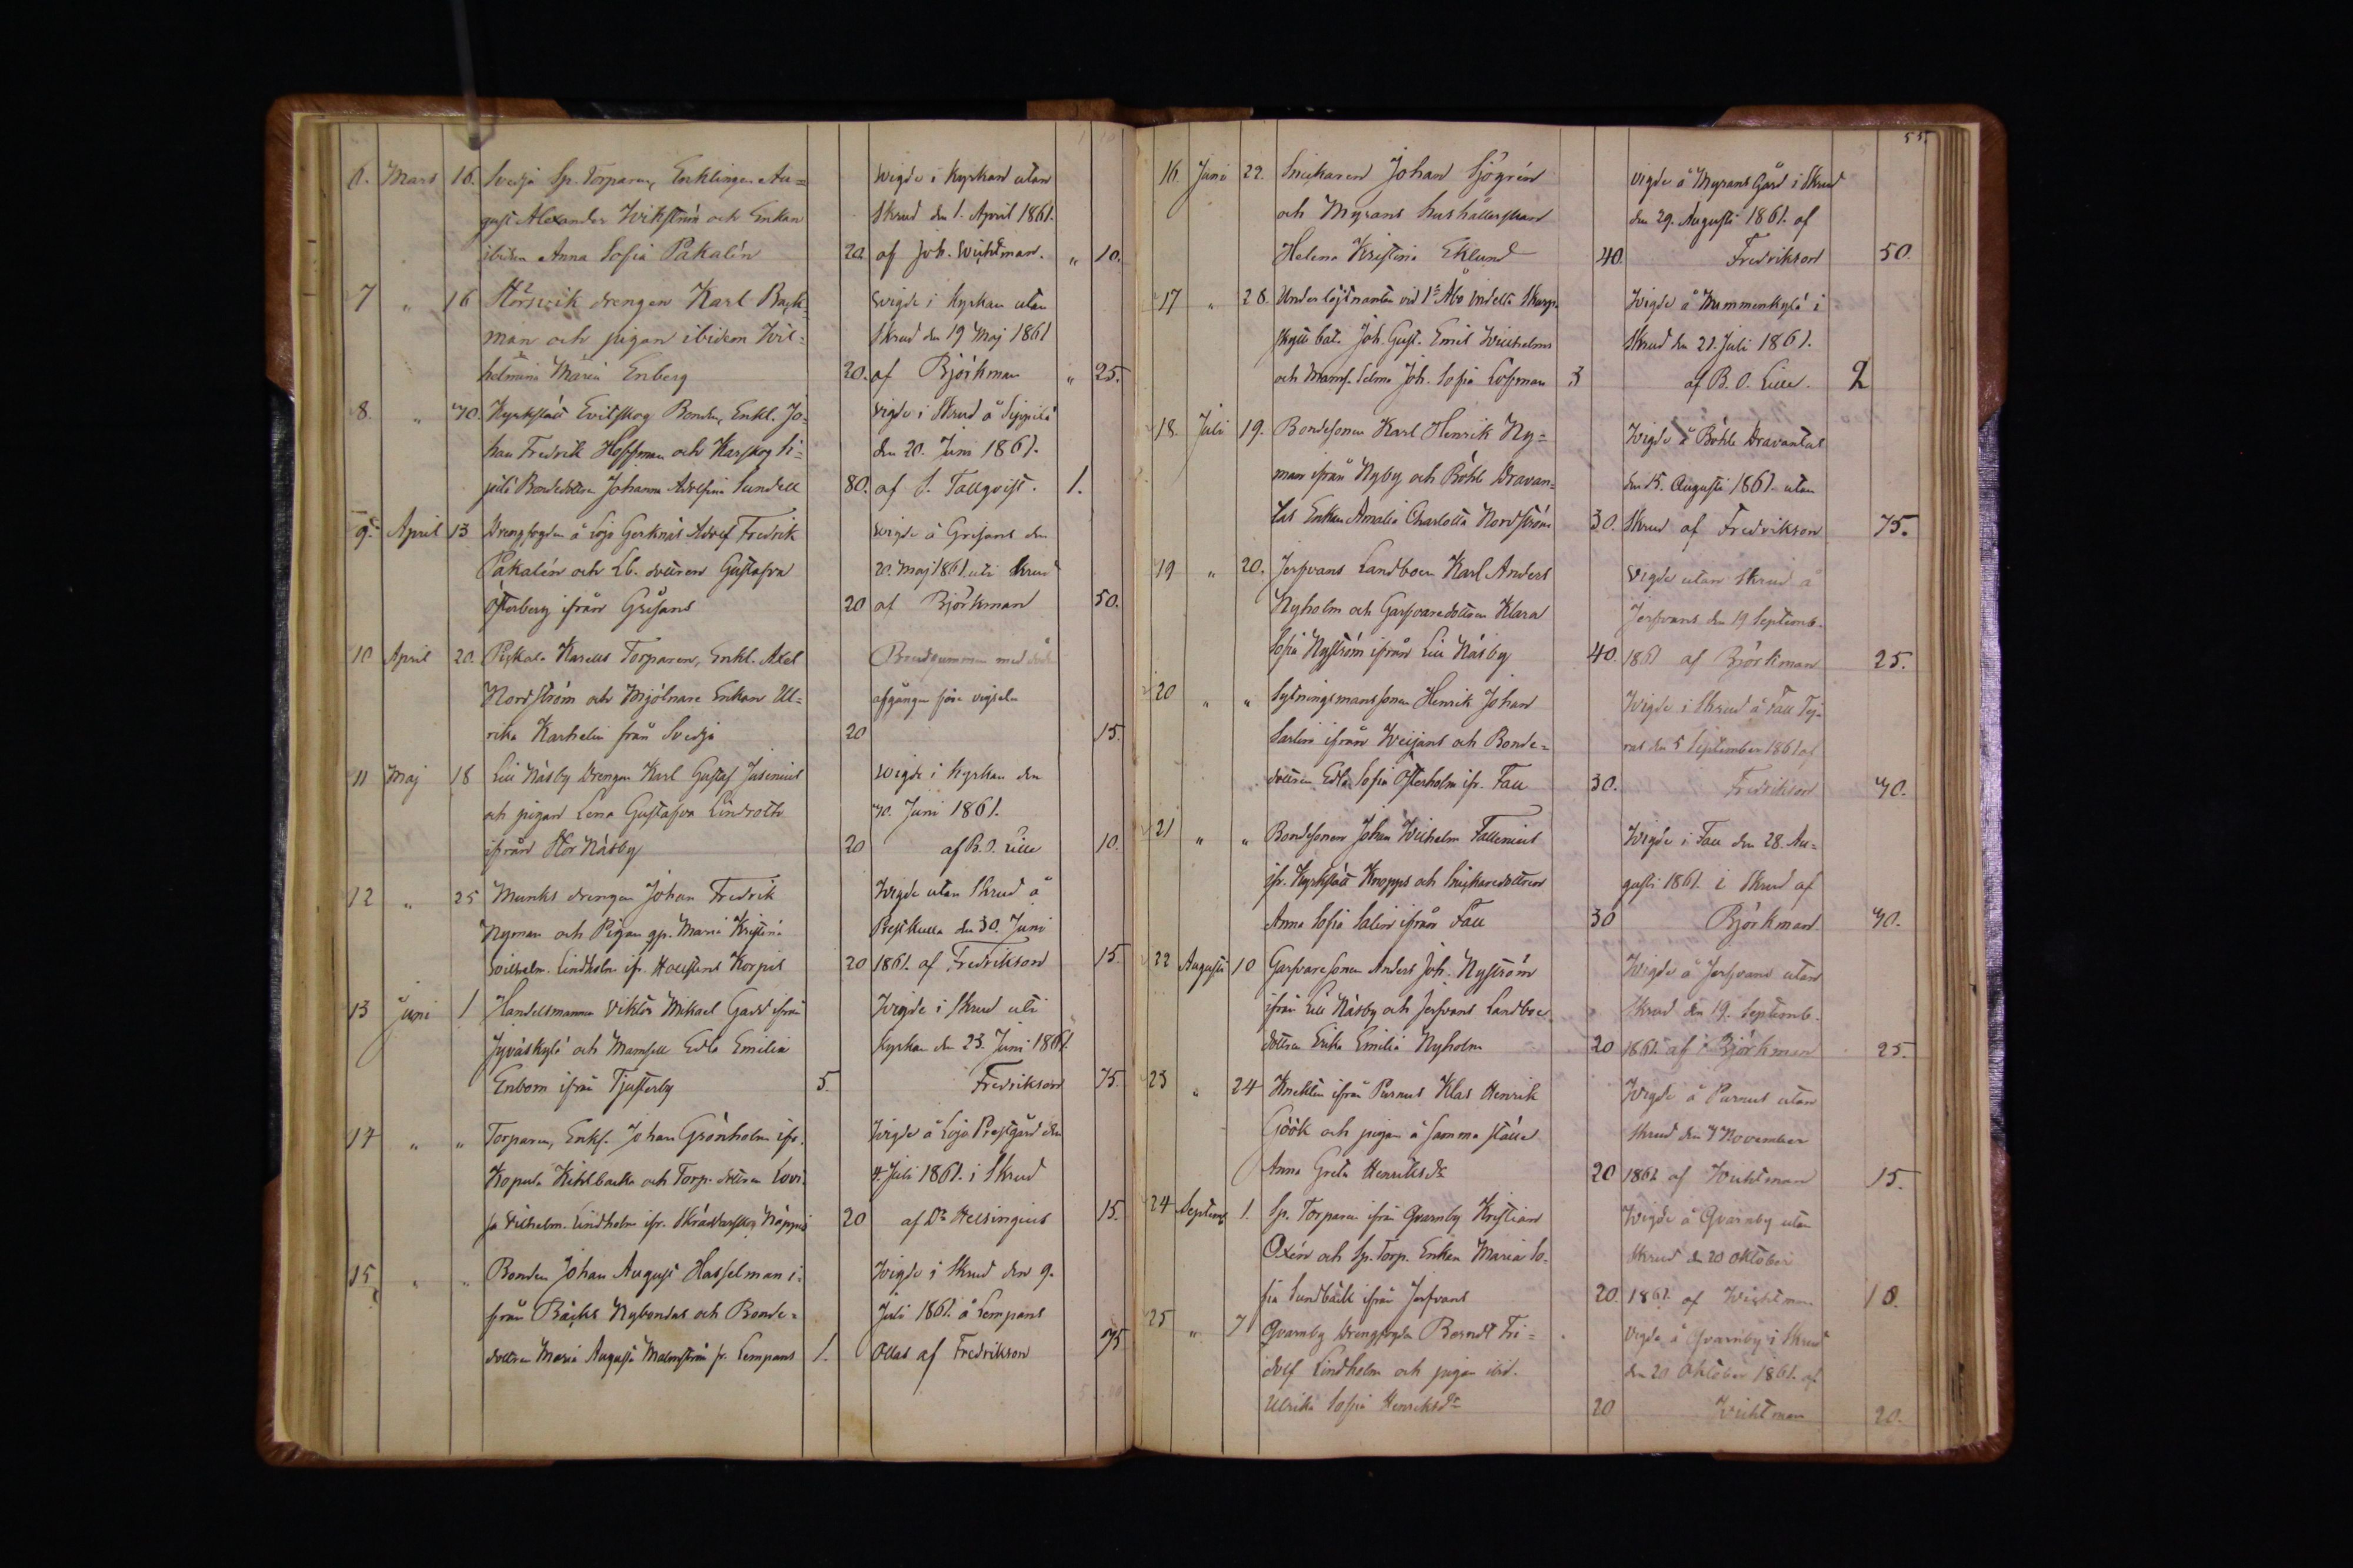 6. Mars 16. Svedja Sp. Torparen, Enklingen Au= Wigde i Kyrkan utan
gust Alexander Wikström och Enkan Skrud den 1. April 1861.
ibidem Anna Sofia Pakalén 20. af Joh. Wichtman. " 10.
7 " 16 Storsvik drengen Karl Back= Wigde i Kyrkan utan
man och pigan ibidem Wil= Skrud den 19 Maj 1861
helmina Maria Enberg 20. af Björkman " 25.
8. " 30. Kyrkslätt Evitskog Bonden, Enkl. Jo= Vigde i Skrud å Sippilä
han Fredrik Hoffman och Karskog Si= den 20. Juni 1861.
pilä Bondedottren Johanna Adolfina Sundell 80. af S. Tallqvist. 1.
9. April 13 Drengfogden å Lojo Gerknäs Adolf Fredrik Wigde å Grefans den
Pakalén och Lb. dottren Gustafva 20. Maj 1861 uti Skrud
Österberg ifrån Grefans 20 af Björkman 50.
10 April 20. Torparen, Enkl. Axel Brudgummen med
Nordström och Mjölnare Enkan Ul= afgången före vigseln
rika Karhelin från Svedja 20 15.
11 Maj 18 Lill Näsby Drengen Karl Gustaf Jusenius Wigde i Kyrkan den
och pigan Lena Gustafva Lindroth 30. Juni 1861.
ifrån Stor Näsby 20 af B. O. Lille 10.
12 " 25 Munks drengen Johan Fredrik Wigde utan Skrud å
Nyman och Pigan gp. Maria Kristina Prestkulla den 30. Juni
Wilhelm. Lindholm ifr. Korpis 20 1861. af Fredrikson 15.
13 Juni 1 Handelsmannen Viktor Mikael Gadd ifrån Wigde i Skrud uti
Jyväskylä och Mamsell Edla Emilia Kyrkan den 23. Juni 1861.
Enbom ifrån Tjusterby 5. Fredrikson 75.
14 " " Torparen, Enkl. Johan Grönholm ifr. Wigde å Lojo Prestgård den
Kopula Kihlbacka och Torp. dottren Lovi= 4. Juli 1861. i Skrud
sa Vilhelm. Lindholm ifr. 20 af Dr Helsingius 15.
15 " " Bonden Johan August Hasselman i= Wigde i Skrud den 9.
från Bäcks Nybondas och Bonde= Juli 1861. å Lempans
dottren Maria Augusta Malmström fr. Lempans 1. Ollas af Fredrikson 75
55.
16. Juni 22. Snickaren Johan Sjögrén Vigde å Myrans Gård i Skrud
och Myrans hushållerskan den 29. Augusti 1861. af
Helena Kristina Eklund 40. Fredrikson 50.
17 " 28. Underlöjtnanten vid 1sta Åbo Indelta Skarp= Wigde å Nummenkylä i
skytte bat. Joh. Gust. Emil Wilhelms Skrud den 21. Juli 1861.
och Mams. Selma Joh. Sofia Lofman 3 af B. O. Lille. 2
18. Juli 19. Bondesonen Karl Henrik Ny= Wigde å Böhle Dravantas
man ifrån Nyby och Böhle Dravan= den 15. Augusti 1861 utan
tas Enkan Amalia Charlotta Nordström 30. Skrud af Fredrikson 75.
19 " 20. Jerfvans Landboen Karl Anders Wigde utan Skrud å
Nyholm och Garfvaredottren Klara Jerfvans den 19 Septemb.
Sofia Nyström ifrån Lill Näsby 40. 1861 af Björkman 25.
20 " " Sytningsmanssonen Henrik Johan Wigde i Skrud å Fall
Sarlin ifrån Weijans och Bonde= den 5 September 1861 af
dottren Edla Sofia Österholm ifr. Fall 30. Fredrikson 30.
21 " " Bondesonen Johan Wilhelm Fallenius Wigde i Fall den 28. Au=
ifr. Kyrkslätt Knopps och Snickaredottren gusti 1861. i Skrud af
Anna Sofia Salin ifrån Fall 30 Björkman 30.
22 Augusti 10 Garfvaresonen Anders Joh. Nyström Wigde å Jerfvans utan
ifrån Lill Näsby och Jerfvans Landboe Skrud den 19. Septemb.
dottren Erika Emilia Nyholm 20 1861. af Björkman 25.
23 " 24 Knekten ifrån Purnus Klas Henrik Wigde å Purnus utan
Göök och pigan å samma ställe Skrud den 3 November
Anna Greta Henriksdr 20 1861 af Wichtman 15.
24 Septemb. 1. Sp. Torparen ifrån Qvarnby Kristian Wigde å Qvarnby utan
Oxén och Sp. Torp. Enkan Maria So= Skrud den 20 Oktober
fia Sundbäck ifrån Jerfvans 20 1861. af Wichtman 10.
25 " 7 Qvarnby Drengfogden Berndt Fri= Vigde å Qvarnby i Skrud
dolf Lindholm och pigan ibid. den 20 Oktober 1861. af
Ulrika Sofia Henriksdr 20 Wichtman 20.